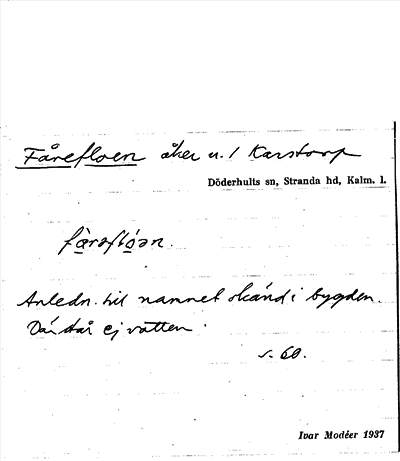 Fårefloen åker u. / Karstorp
Döderhults sn, Stranda hd, Kalm. l.
fàrəflóən.
Anledn. till namnet okänd i bygden.
Där står ej vatten.
s. 60.
Ivar Modéer 1937